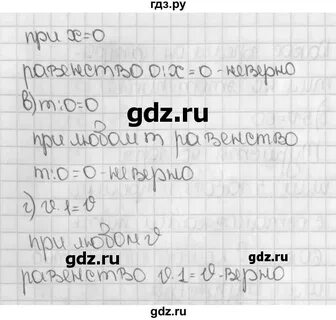 gdz.ру
при x=0
равенство 0:x=0-неверно
в) m:0=0
gdz.ru
при любом m равенство
m:0=0-неверно
г) v 1=v
при любом v
равенство v 1=v-верно
gdz.ru